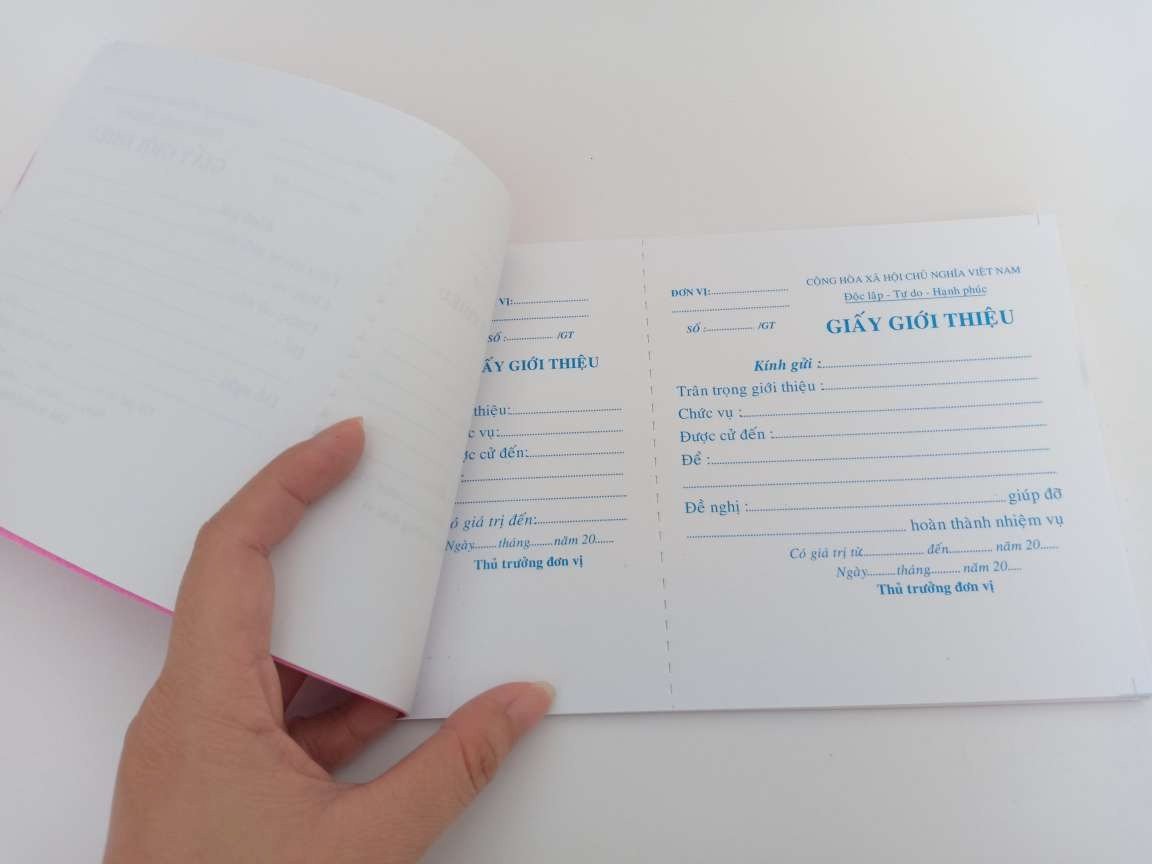 VỊ:
SỐ : /GT
ẤY GIỚI THIỆU
thiệu:
c vụ:
ợc cử đến:
:
ó giá trị đến:
Ngày........tháng........năm 20......
Thủ trưởng đơn vị
ĐƠN VỊ:
SỐ : /GT
CỘNG HÒA XÃ HỘI CHỦ NGHĨA VIỆT NAM
Độc lập - Tự do - Hạnh phúc
GIẤY GIỚI THIỆU
Kính gửi :
Trân trọng giới thiệu :
Chức vụ :
Được cử đến :
Để :
Đề nghị : giúp đỡ
hoàn thành nhiệm vụ
Có giá trị từ.................... đến.............. năm 20......
Ngày.........tháng.......... năm 20.....
Thủ trưởng đơn vị